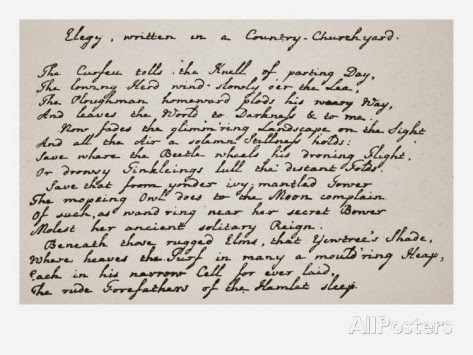 Elegy, written in a Country-Churchyard.
The Curfeu tolls the Knell of parting Day,
The lowing Herd wind slowly o'er the Lea,
The Ploughman homeward plods his weary Way,
And leaves the World to Darkness & to me.
Now fades the glimm'ring Landscape on the Sight
And all the Air a solemn Stillness holds:
Save where the Beetle wheels his droning Flight,
Or drowsy Tinkleings lull the distant Folds.
Save that from yonder ivy-mantled Tower
The mopeing Owl does to the Moon complain
Of such, as wand'ring near her secret Bower
Molest her ancient solitary Reign.
Beneath those rugged Elms, that Yewtree's Shade,
Where heaves the Turf in many a mould'ring Heap,
Each in his narrow Cell for ever laid,
The rude Forefathers of the Hamlet sleep.
AllPosters